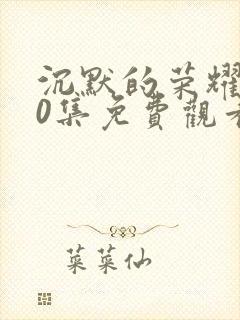 沉默的荣耀
0集免費觀看
菜菜仙